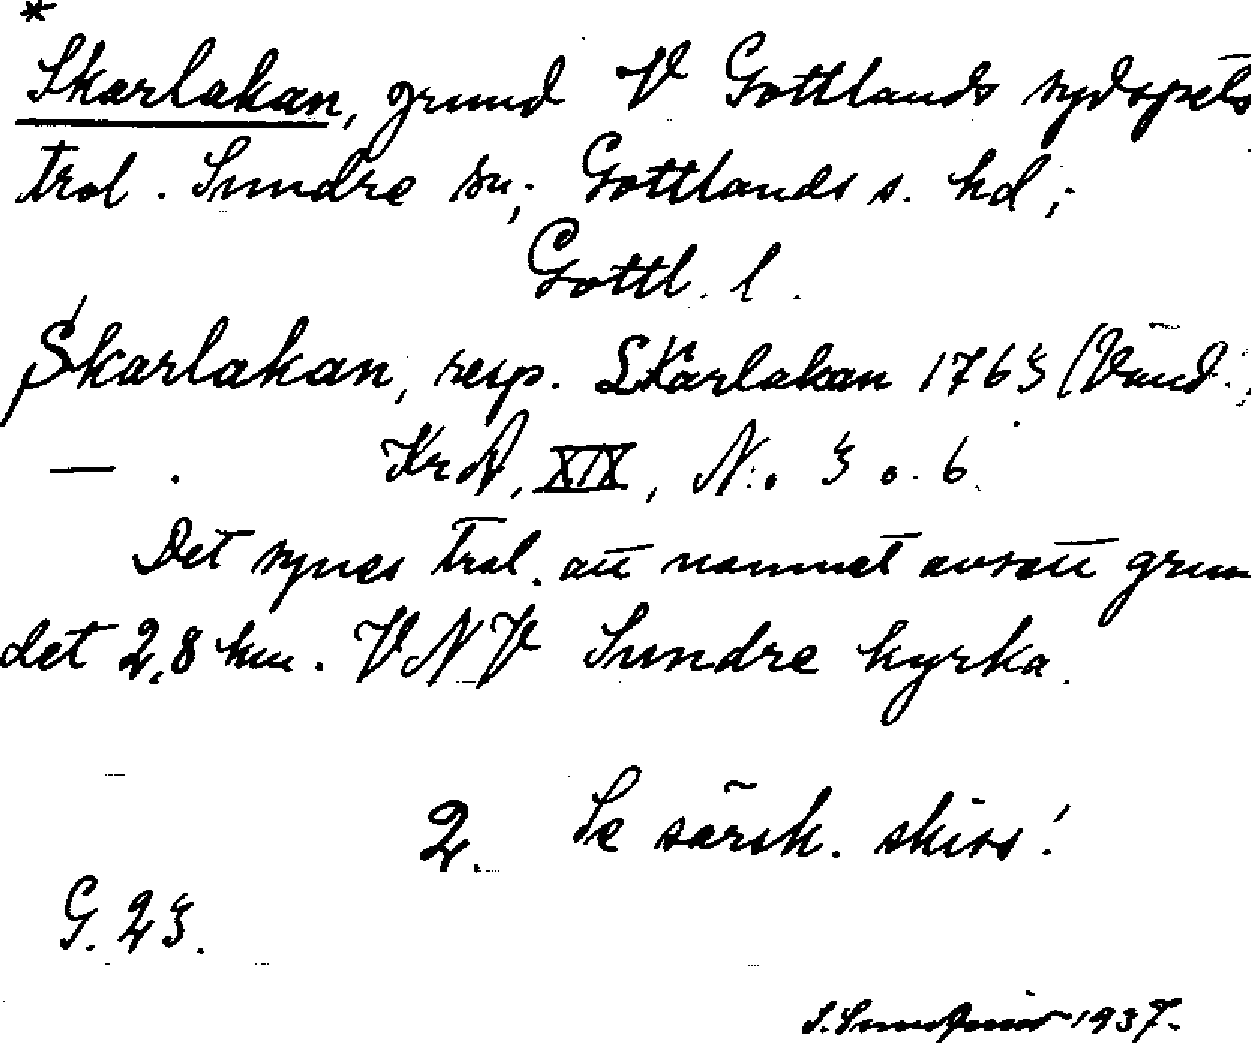 *
Skarlakan, grund V Gottlands sydspets
trol. Sundre sn; Gottlands s. hd;
Gottl. l.
Skarlakan, resp. Skarlakan 1765 (Vänd.;
— . KrA, XIX, N:o 5 o. 6.
Det synes trol. att namnet avsett grun
det 2,8 km. VNV Sundre kyrka.
2. Se särsk. skiss!
G. 25.
1937.